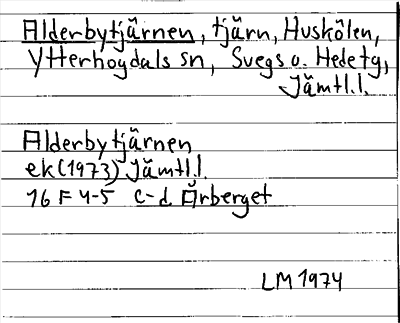 Alderbytjärnen, tjärn, Huskölen,
Ytterhogdals sn, Svegs o. Hede tg,
Jämtl.l.
Alderbytjärnen
ek (1973) Jämtl.l.
16 F 4-5 c-d Örberget
LM 1974